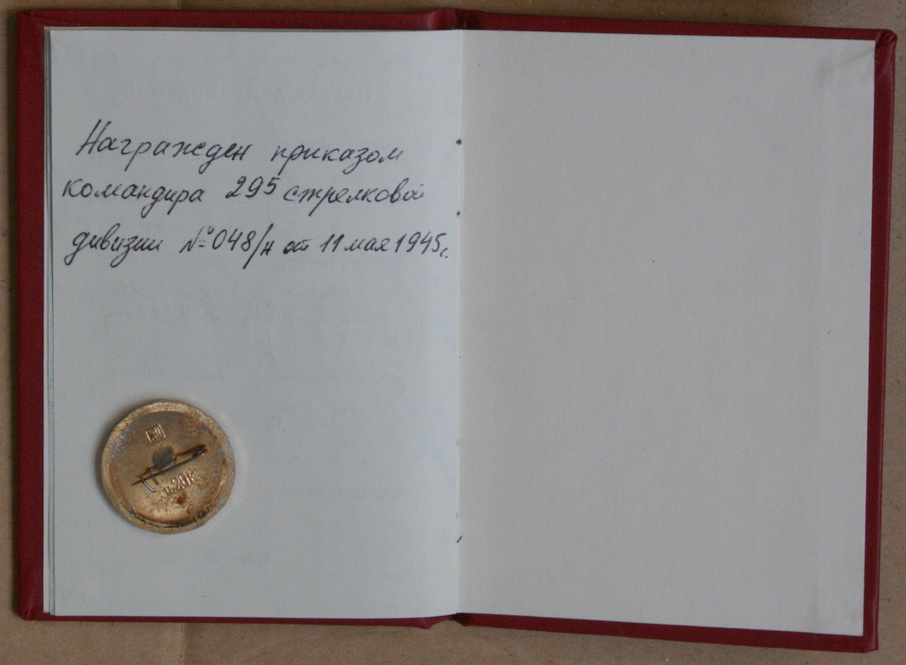 Награжден приказом
командира 295 стрелковой
дивизии № 048/н от 11 мая 1945г.